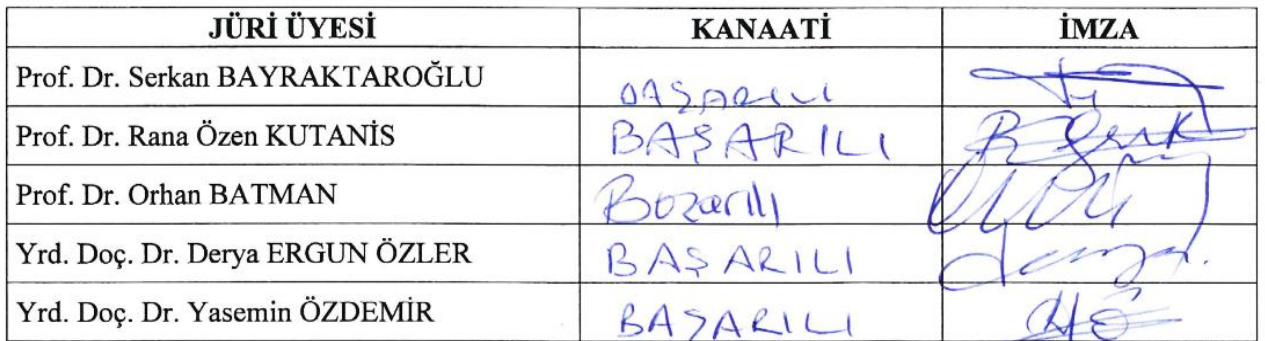 JÜRİ ÜYESİ KANAATİ İMZA
Prof. Dr. Serkan BAYRAKTAROĞLU BAŞARILI
Prof. Dr. Rana Özen KUTANİS BAŞARILI
Prof. Dr. Orhan BATMAN Başarılı
Yrd. Doç. Dr. Derya ERGUN ÖZLER BAŞARILI
Yrd. Doç. Dr. Yasemin ÖZDEMİR BAŞARILI